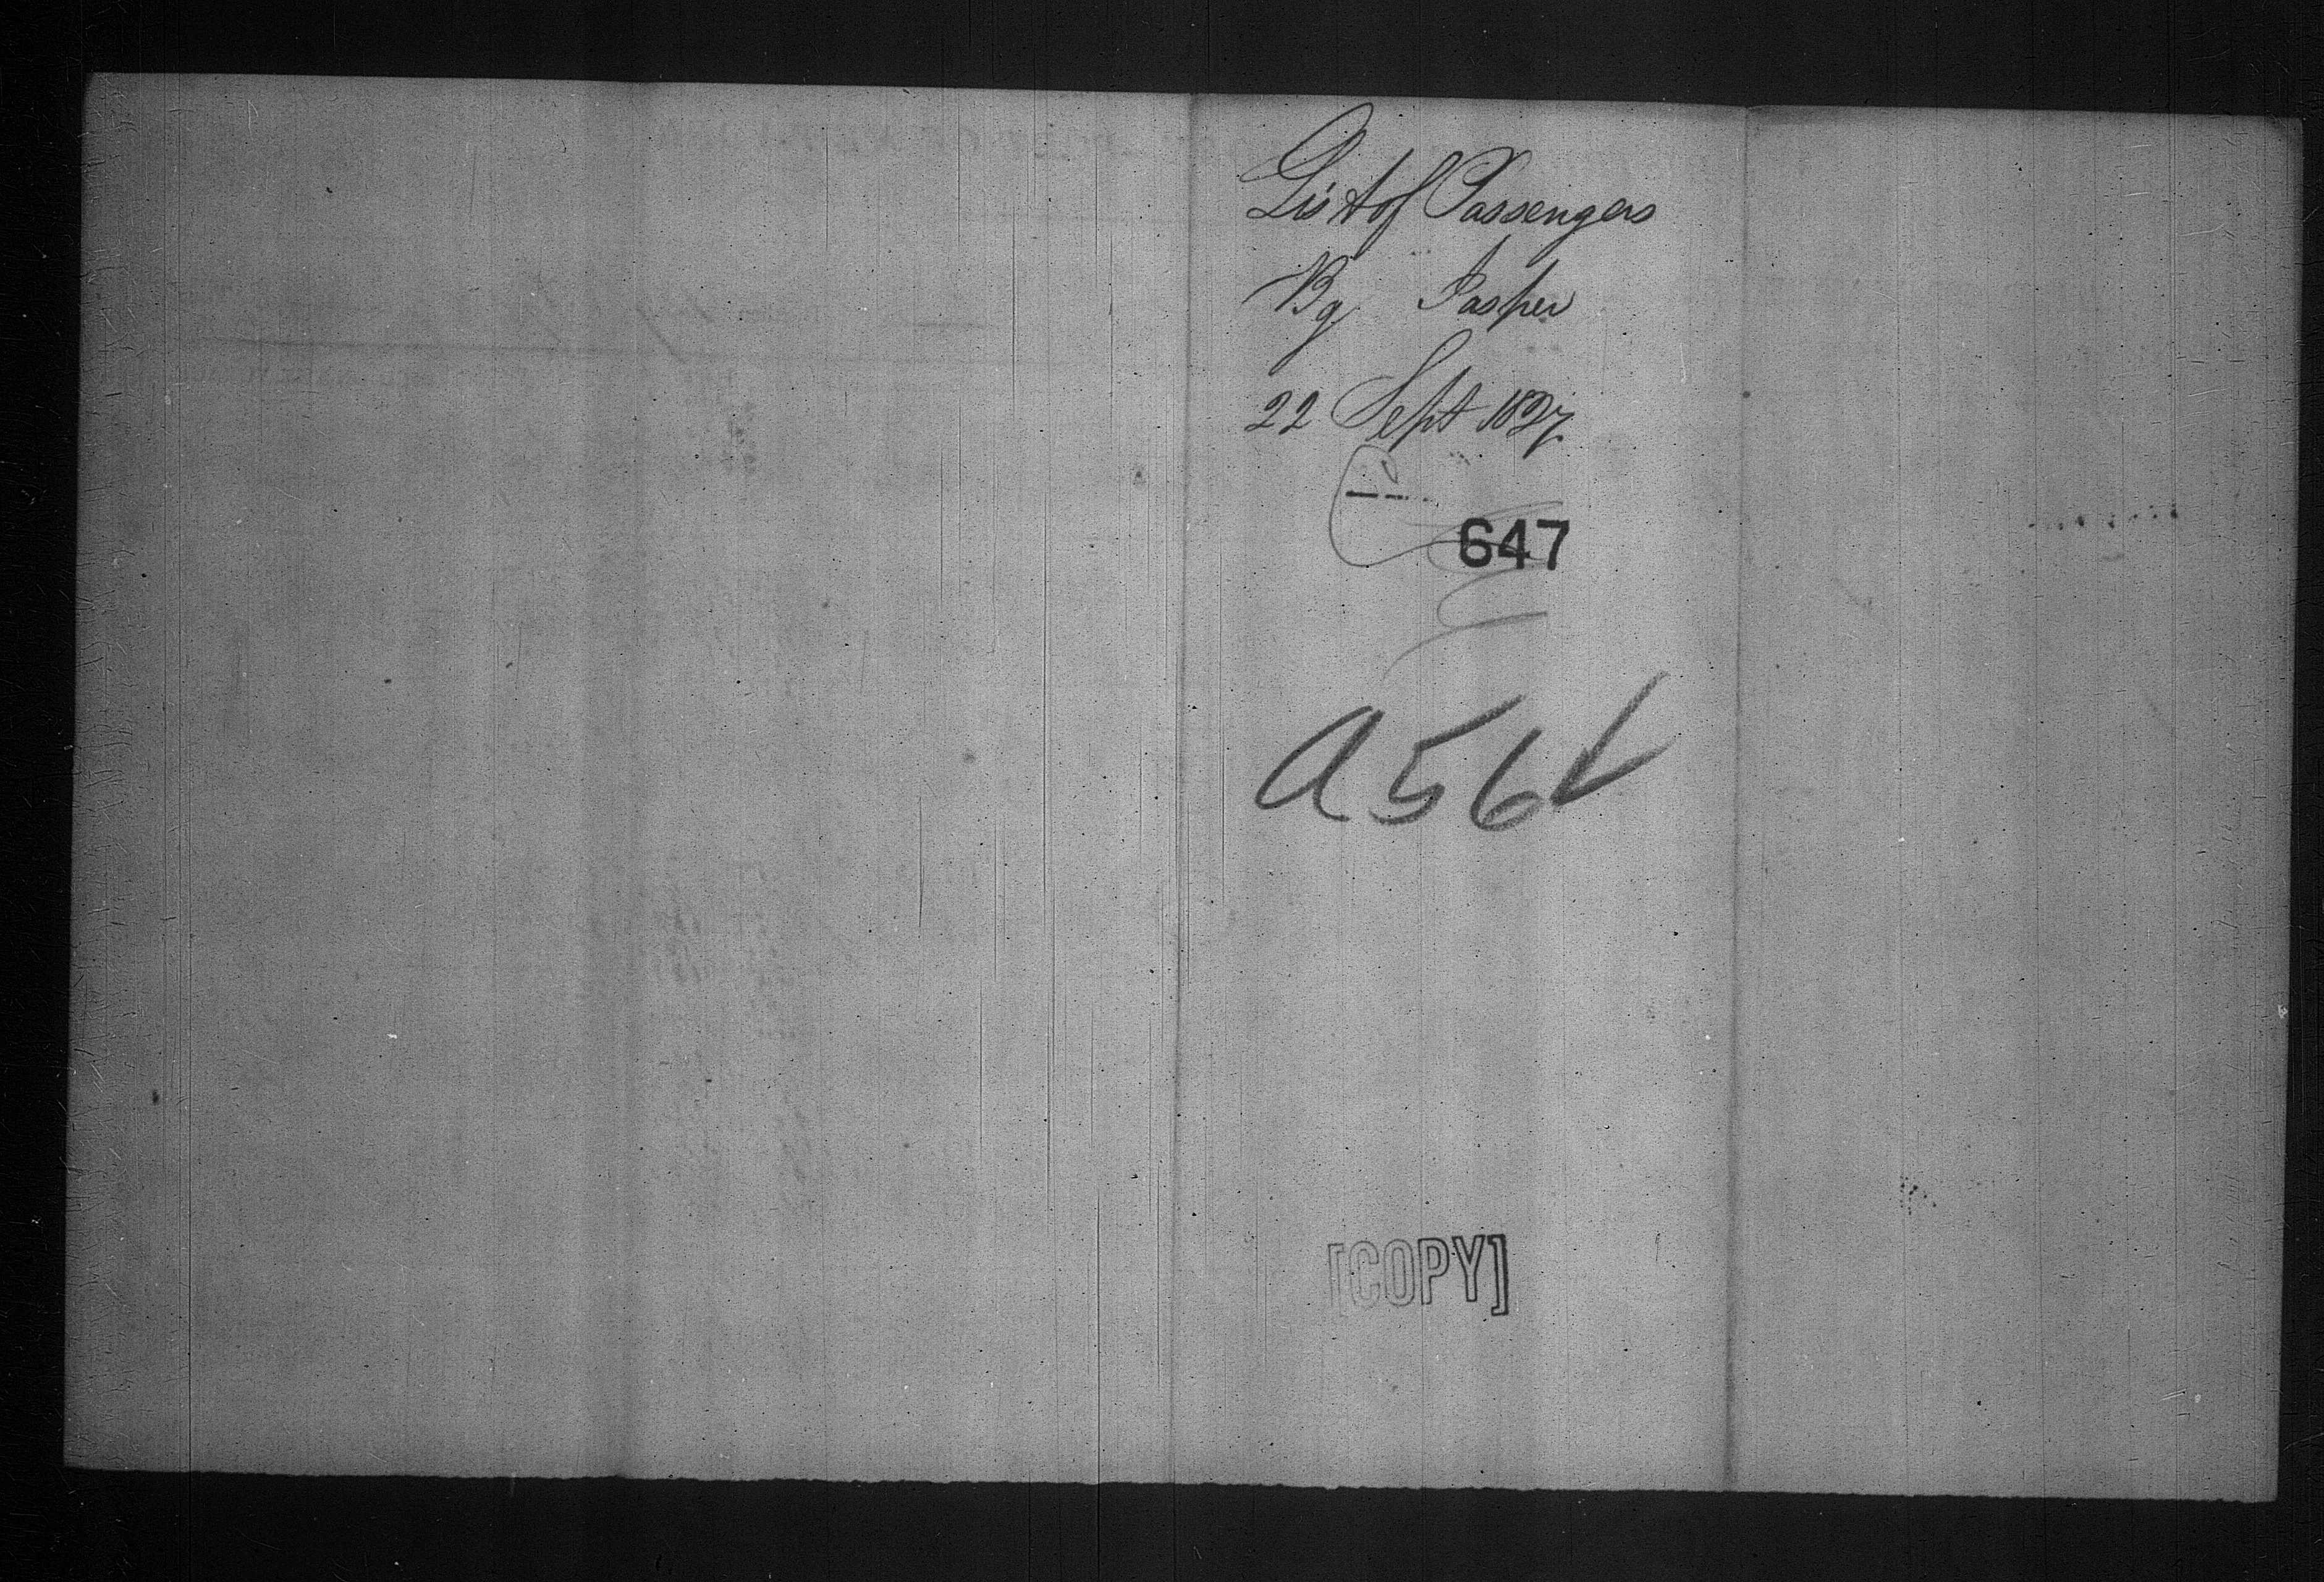 List of Passengers
Bg Jasper
22 Sept 1827
647
A56
[COPY]